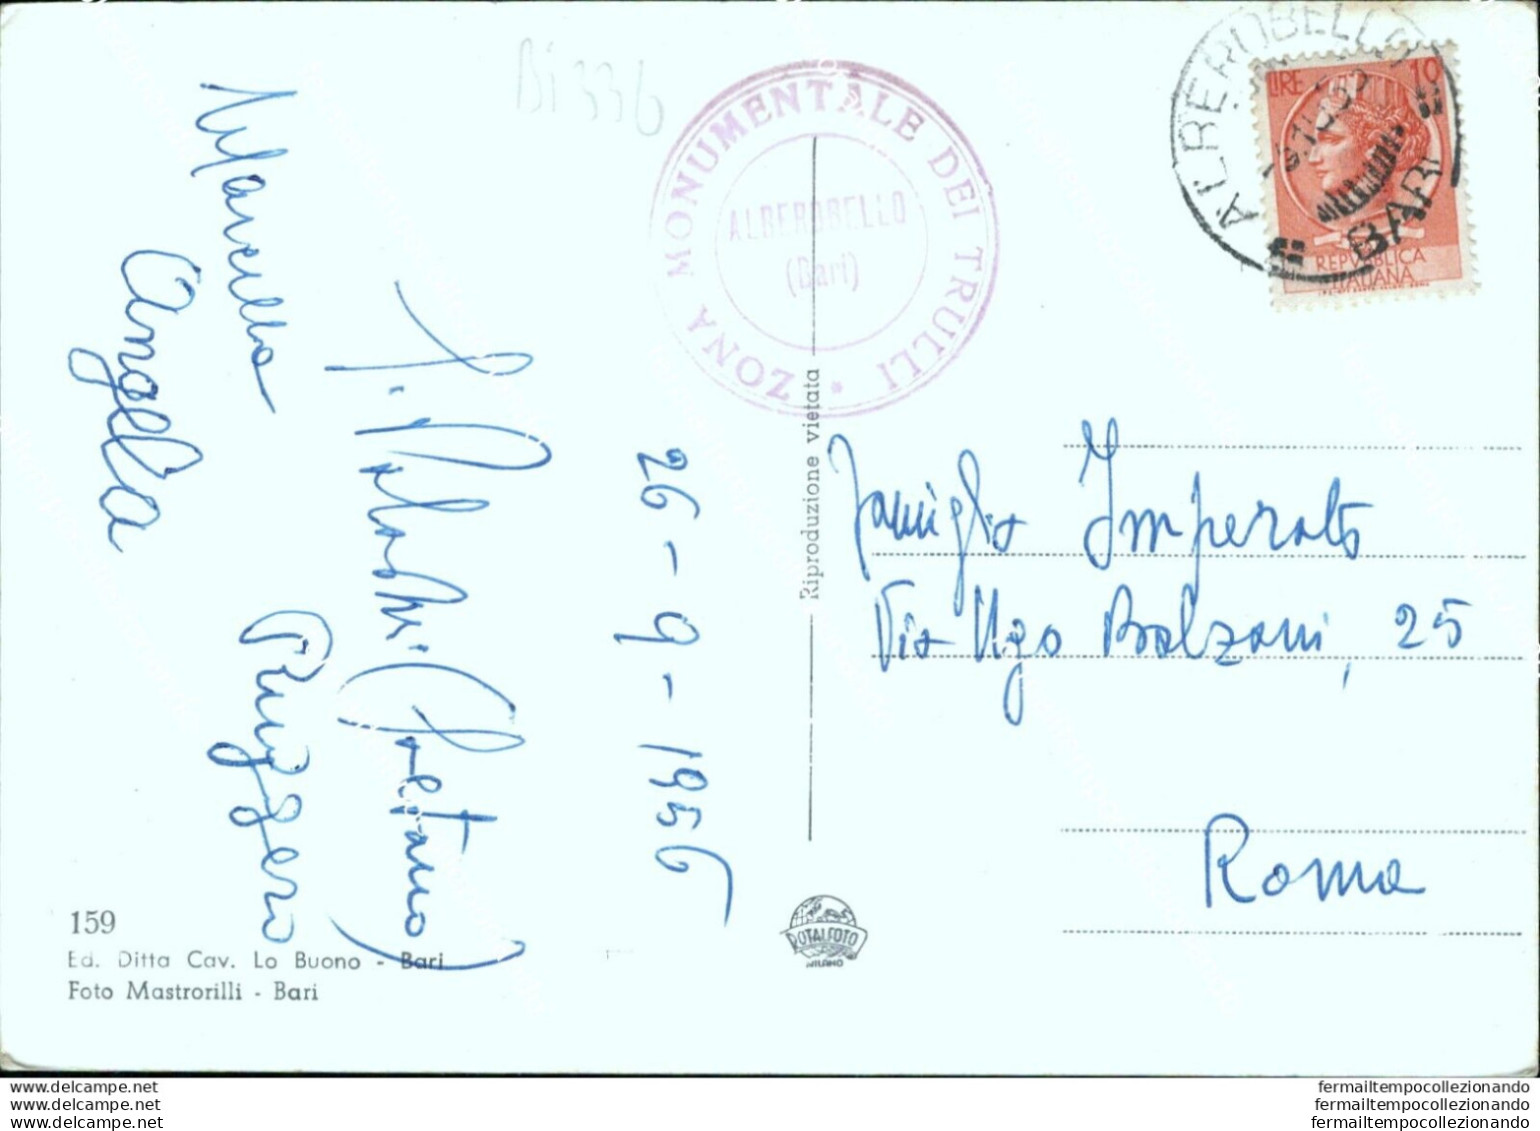 Bi 336
ZONA MONUMENTALE DEI TRULLI
ALBEROBELLO
(Bari)
ALBEROBELLO
BARI
LIRE 10
REPVBBLICA
ITALIANA
Marcello
Angela
(Gaetano)
Ruggero
26-9-1956
Riproduzione vietata
Famiglia Imperato
Via Ugo Balzani, 25
Roma
159
Ed. Ditta Cav. Lo Buono - Bari
Foto Mastrorilli - Bari
ROTALFOTO
MILANO
www.delcampe.net
www.delcampe.net
www.delcampe.net
fermailtempocollezionando
fermailtempocollezionando
fermailtempocollezionando